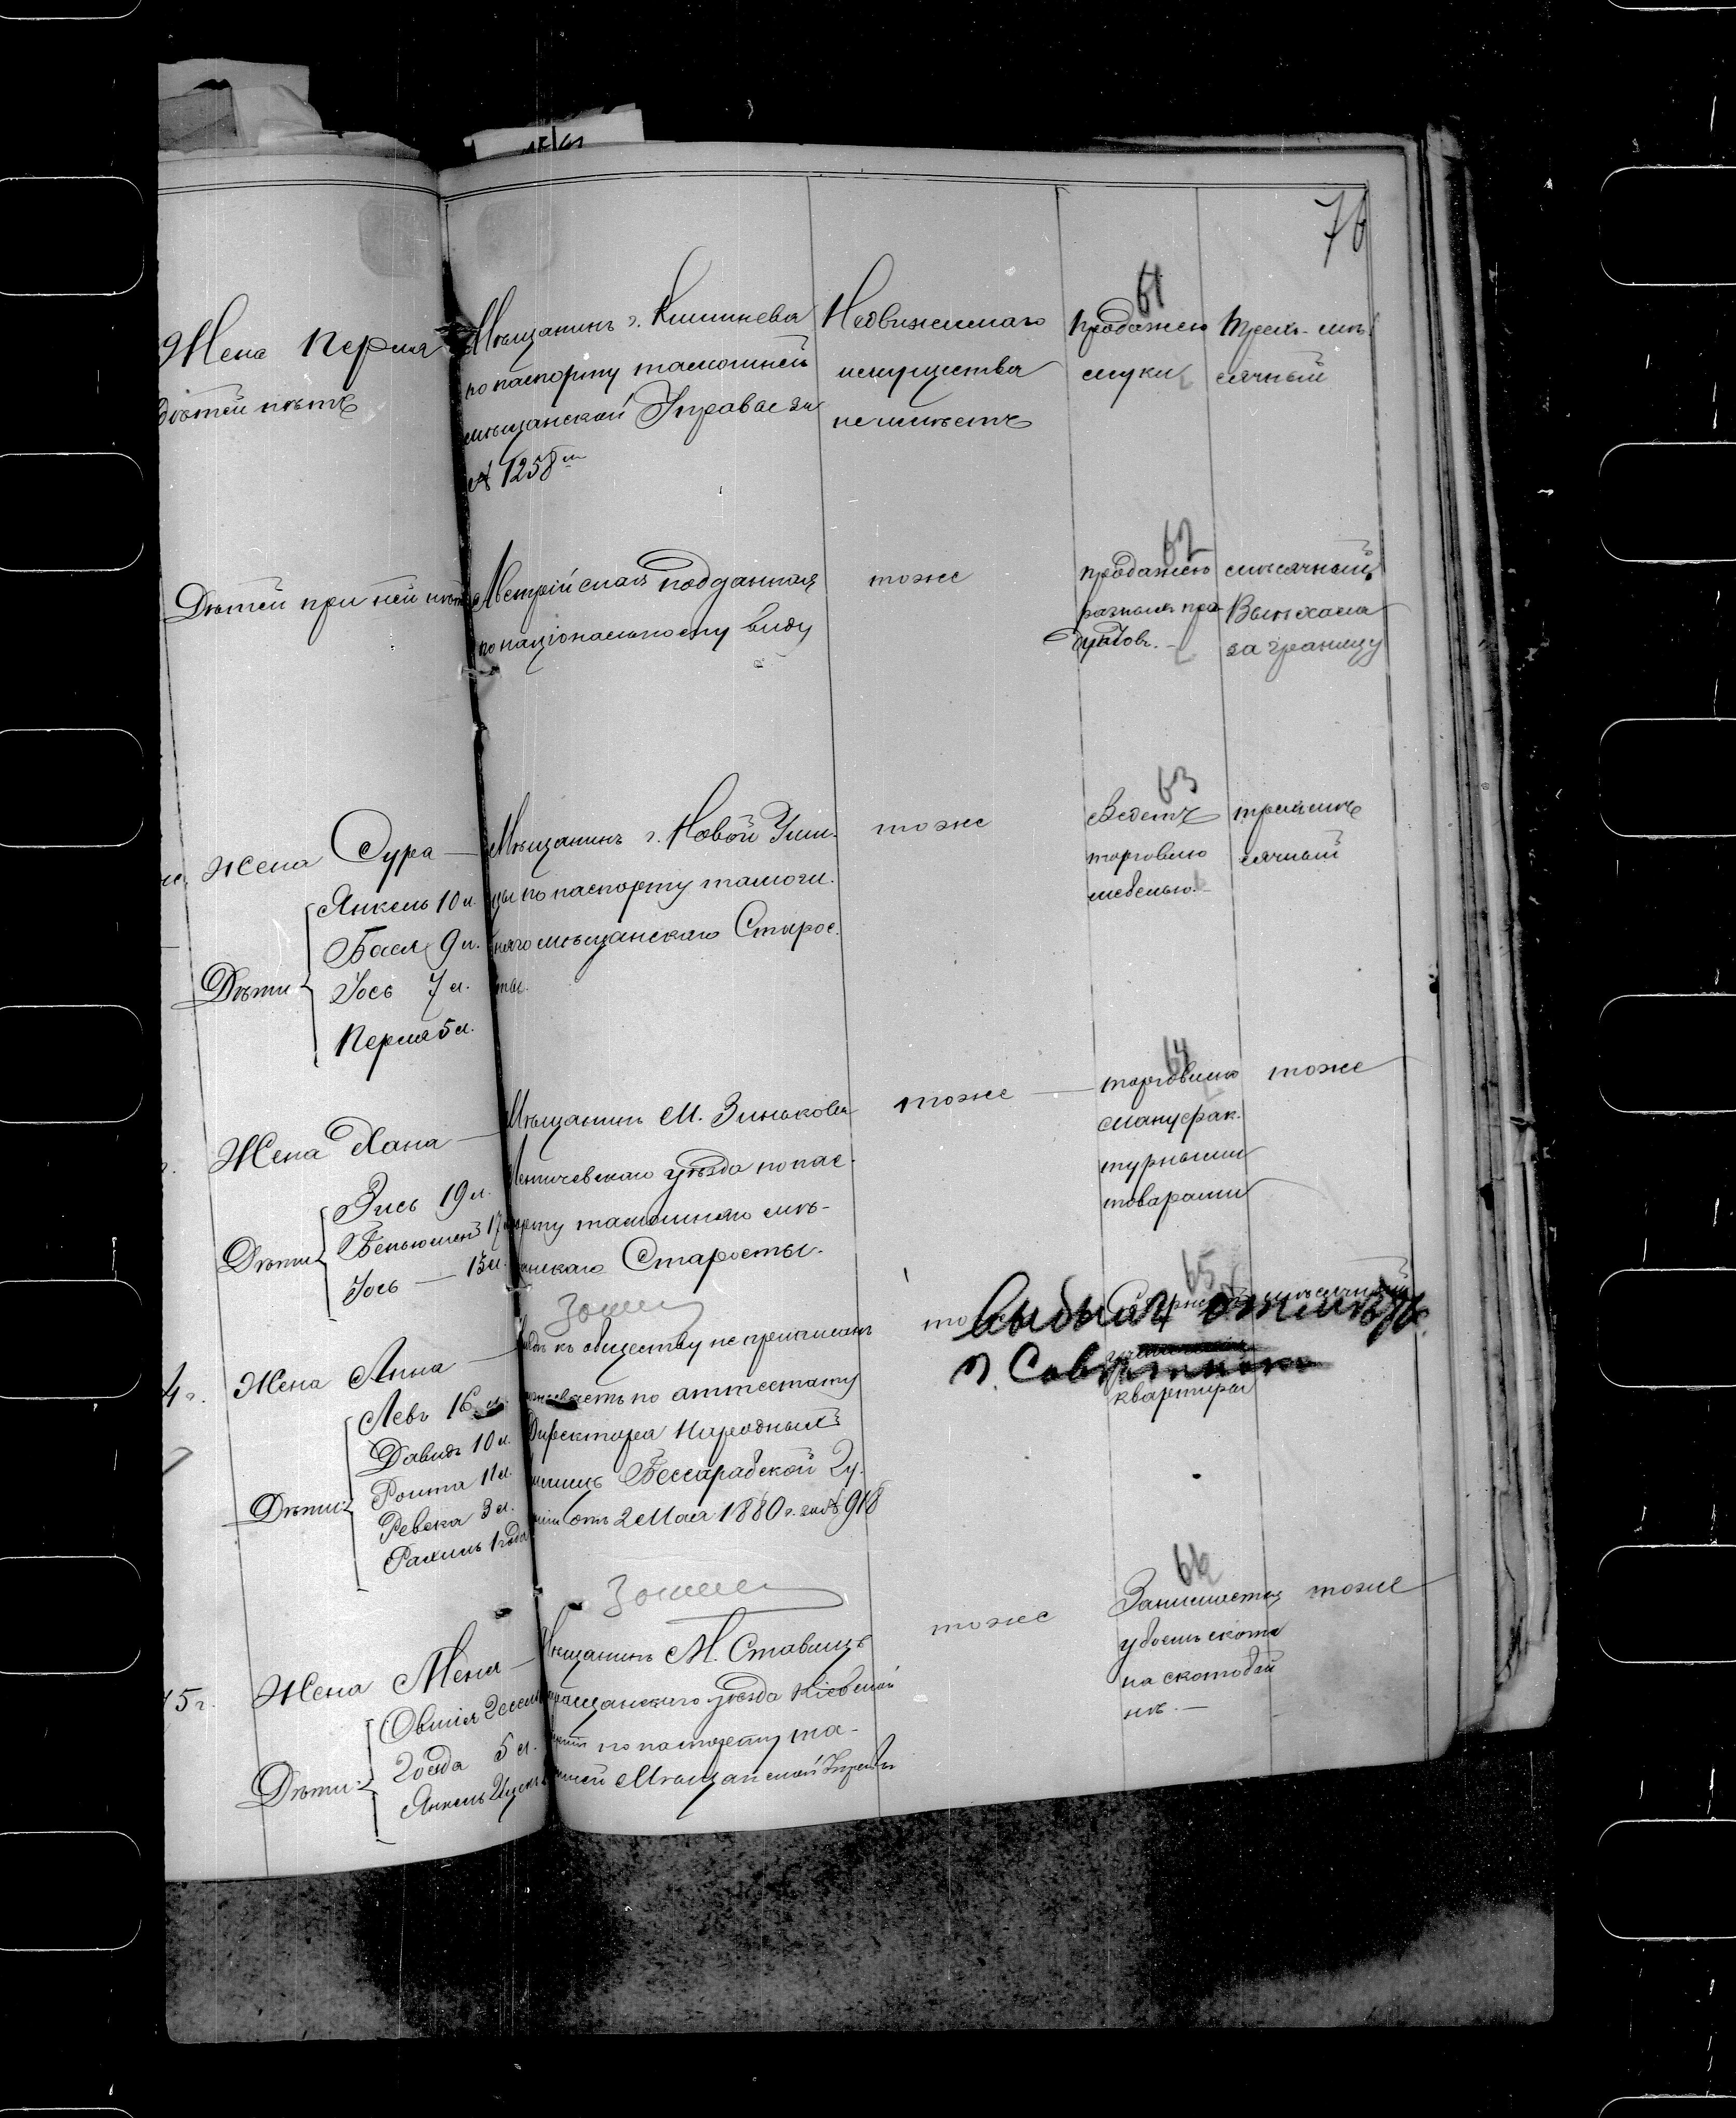 76
61
Жена Перля
дѣтей нѣтъ
Мѣщанинъ г. Кишинева
по паспорту тамошней
мѣщанской Управы за
№ 1258
Недвижимаго
имущества
не имѣетъ
продажею
муки
трехъ-мѣ-
сячный
62
Дѣтей при ней нѣтъ
Австрійская подданная
по національному виду
тоже
продажею
разныхъ про-
дуктовъ.-
мѣсячный
Выѣхала
за границу
63
Жена Сура —
Дѣти
Янкель 10 л.
Бася 9 л.
Іось 7 л.
Перля 5 л.
Мѣщанинъ г. Новой Уши-
цы по паспорту тамош-
няго мѣщанскаго Старос-
ты.
тоже
Ведетъ
торговлю
мебелью.-
трехмѣ
сячный
64
Жена Хана —
Дѣти
Зись 19 л.
Беньюмен 17
Іось — 13 л.
Мѣщанинъ М. Зинькова
Летичевскаго уѣзда по пас-
порту тамошняго мѣ-
анскаго Старосты.
тоже —
торговлю
мануфак-
турными
товарами
тоже
65
4 г.
Жена Анна —
Дѣти
Левъ 16 л.
Давидъ 10 л.
Ревека 3 л.
Рахиль 1 года
къ обществу не приписанъ
по аттестату
Директора Народныхъ
Бессарабской Гу-
отъ 2 Мая 1880 г. за № 918
квартиры
66
5 г.
Жена Меня —
Дѣти
Янкель
Мѣщанинъ М. Ставищъ
уѣзда Кіевской
по паспорту та-
Мѣщанской Управы
тоже
Занимается
убоемъ скота
на скотобой
нѣ.—
тоже